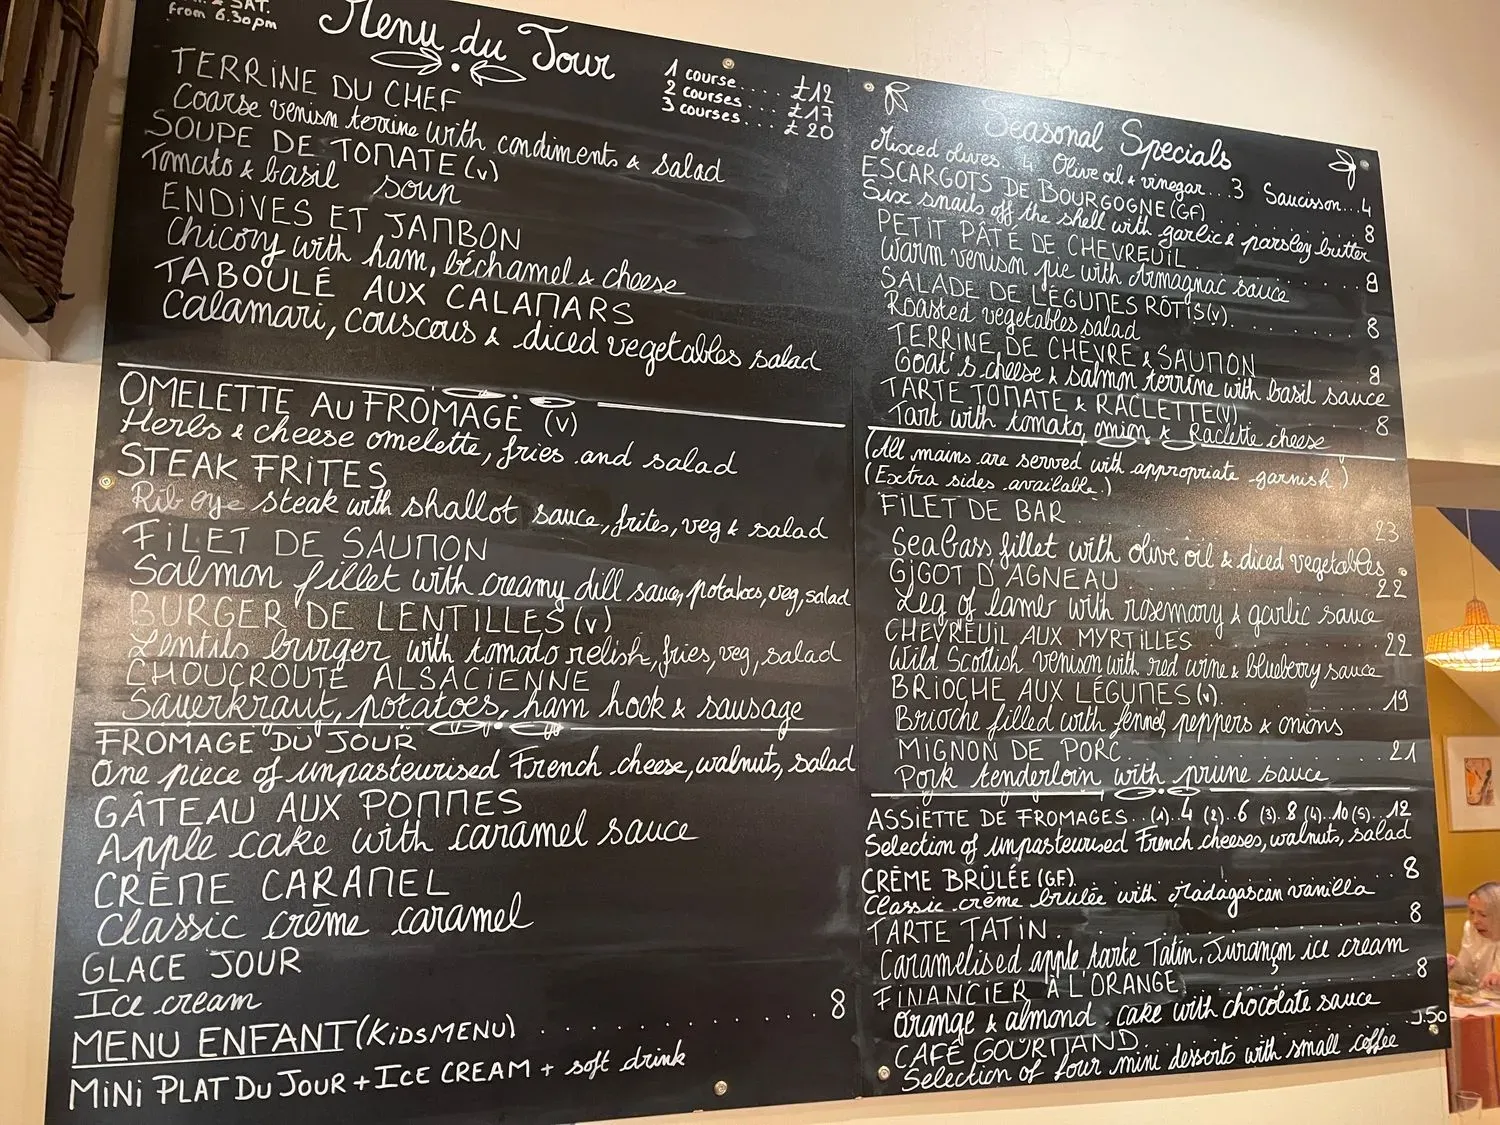 SAT.
from 6.30pm
Menu du Jour
1 course.... £12
2 courses.... £17
3 courses... £20
TERRINE DU CHEF
Coarse venison terrine with condiments & salad
SOUPE DE TOMATE (v)
Tomato & basil soup
ENDIVES ET JAMBON
Chicory with ham, béchamel & cheese
TABOULÉ AUX CALAMARS
Calamari, couscous & diced vegetables salad
OMELETTE AU FROMAGE (v)
Herbs & cheese omelette, fries and salad
STEAK FRITES
Rib eye steak with shallot sauce, frites, veg & salad
FILET DE SAUMON
Salmon fillet with creamy dill sauce, potatoes, veg, salad
BURGER DE LENTILLES (v)
Lentils burger with tomato relish, fries, veg, salad
CHOUCROUTE ALSACIENNE
Sauerkraut, potatoes, ham hock & sausage
FROMAGE DU JOUR
One piece of unpasteurised French cheese, walnuts, salad
GÂTEAU AUX POMMES
Apple cake with caramel sauce
CRÈME CARAMEL
Classic crème caramel
GLACE JOUR
Ice cream
MENU ENFANT (KIDS MENU) .............. 8
MINI PLAT DU JOUR + ICE CREAM + soft drink
Seasonal Specials
Mixed olives 4 Olive oil & vinegar...3 Saucisson...4
ESCARGOTS DE BOURGOGNE (GF) ........ 8
Six snails off the shell with garlic & parsley butter
PETIT PÂTÉ DE CHEVREUIL ........ 8
Warm venison pie with Armagnac sauce
SALADE DE LÉGUMES RÔTIS (v) ........ 8
Roasted vegetables salad
TERRINE DE CHÈVRE & SAUMON 8
Goat's cheese & salmon terrine with basil sauce
TARTE TOMATE & RACLETTE (v) ........ 8
Tart with tomato, onion & Raclette cheese
(All mains are served with appropriate garnish)
(Extra sides available.)
FILET DE BAR 23
Seabass fillet with olive oil & diced vegetables
GIGOT D'AGNEAU ........ 22
Leg of lamb with rosemary & garlic sauce
CHEVREUIL AUX MYRTILLES 22
Wild Scottish venison with red wine & blueberry sauce
BRIOCHE AUX LÉGUMES (v) ........ 19
Brioche filled with fennel, peppers & onions
MIGNON DE PORC ........ 21
Pork tenderloin with prune sauce
ASSIETTE DE FROMAGES ..(1)..4 (2)..6 (3). 8 (4)..10 (5)..12
Selection of unpasteurised French cheeses, walnuts, salad
CRÈME BRÛLÉE (G.F.) ........ 8
Classic crème brûlée with Madagascan vanilla
TARTE TATIN ........ 8
Caramelised apple tarte Tatin, Jurançon ice cream
FINANCIER À L'ORANGE ........ 8
Orange & almond cake with chocolate sauce
CAFÉ GOURMAND ........ .50
Selection of four mini desserts with small coffee